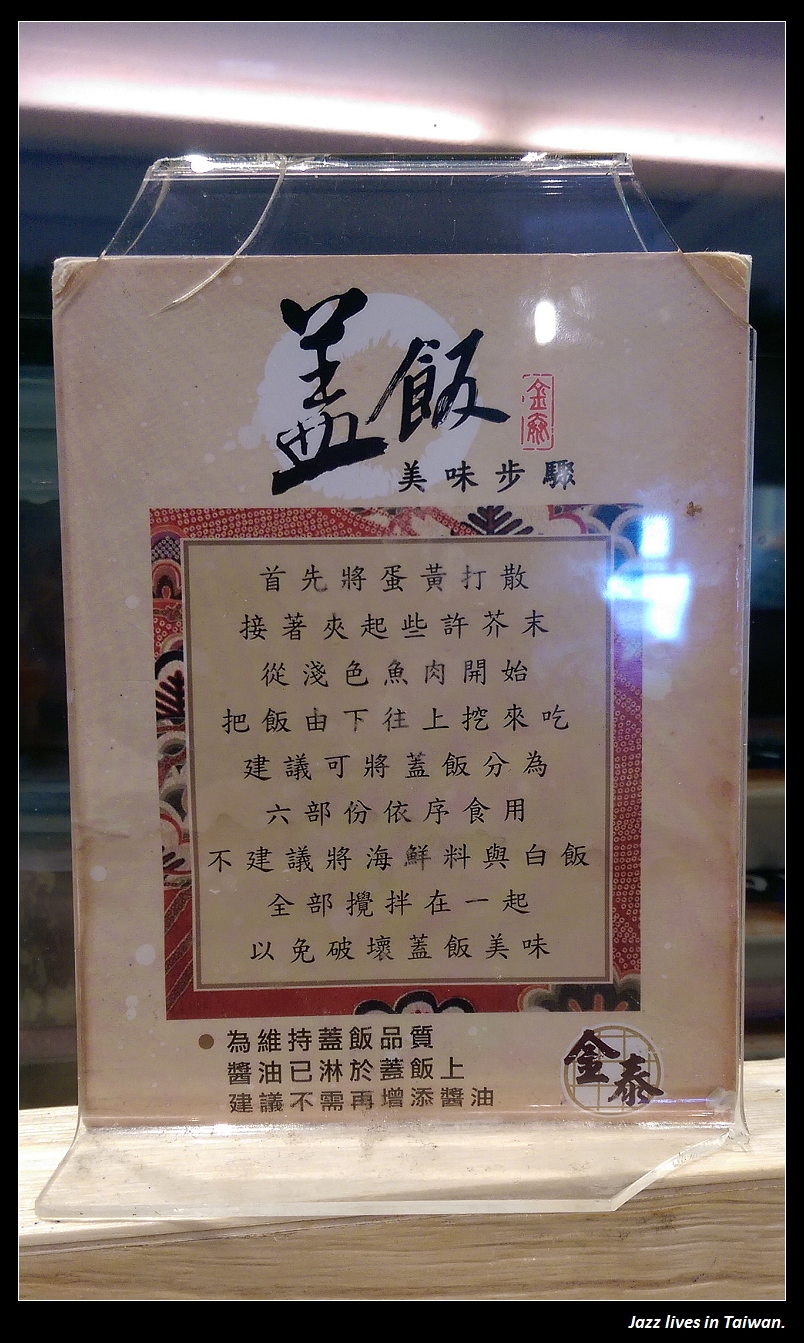 盖飯
金泰
美味步驟
首先將蛋黃打散
接著夾起些許芥末
從淺色魚肉開始
把飯由下往上挖來吃
建議可將蓋飯分為
六部份依序食用
不建議將海鮮料與白飯
全部攪拌在一起
以免破壞蓋飯美味
為維持蓋飯品質
醬油已淋於蓋飯上
建議不需再增添醬油
金泰
Jazz lives in Taiwan.